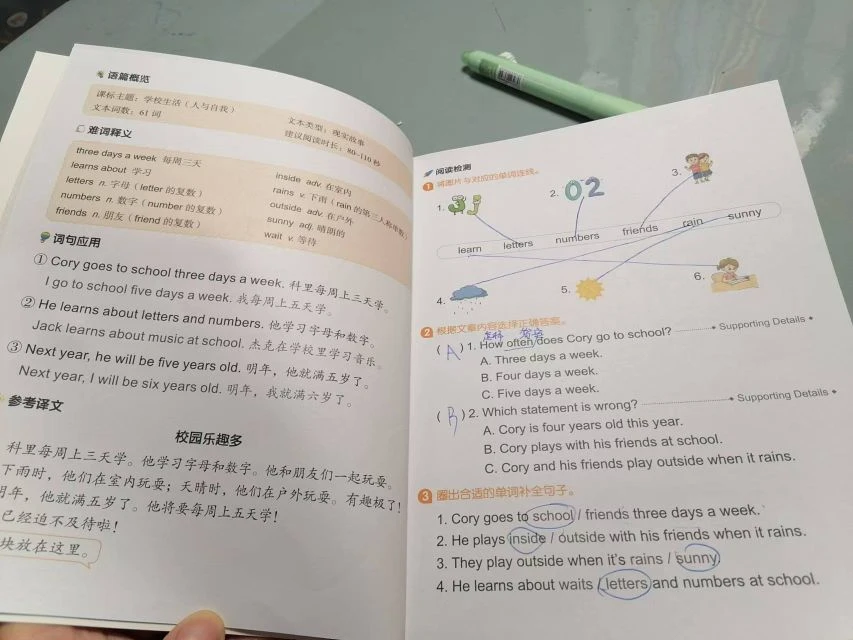 语篇概览
课标主题：学校生活（人与自我）
文本类型：现实故事
文本词数：61 词
建议阅读时长：80-110 秒
难词释义
three days a week 每周三天
learns about 学习
letters n. 字母（letter 的复数）
numbers n. 数字（number 的复数）
friends n. 朋友（friend 的复数）
inside adv. 在室内
rains v. 下雨（rain 的第三人称单数）
outside adv. 在户外
sunny adj. 晴朗的
wait v. 等待
词句应用
① Cory goes to school three days a week. 科里每周上三天学。
I go to school five days a week. 我每周上五天学。
② He learns about letters and numbers. 他学习字母和数字。
Jack learns about music at school. 杰克在学校里学习音乐。
③ Next year, he will be five years old. 明年，他就满五岁了。
Next year, I will be six years old. 明年，我就满六岁了。
参考译文
校园乐趣多
科里每周上三天学。他学习字母和数字。他和朋友们一起玩耍。
下雨时，他们在室内玩耍；天晴时，他们在户外玩耍。有趣极了！
明年，他就满五岁了。他将要每周上五天学！
已经迫不及待啦！
块放在这里。
阅读检测
1 将图片与对应的单词连线。
1.
2. 02
3.
learn letters numbers friends rain sunny
4.
5.
6.
2 根据文章内容选择正确答案。
怎样
( A ) 1. How often does Cory go to school? Supporting Details
A. Three days a week.
B. Four days a week.
C. Five days a week.
( B ) 2. Which statement is wrong? Supporting Details
A. Cory is four years old this year.
B. Cory plays with his friends at school.
C. Cory and his friends play outside when it rains.
3 圈出合适的单词补全句子。
1. Cory goes to school / friends three days a week.
2. He plays inside / outside with his friends when it rains.
3. They play outside when it's rains / sunny.
4. He learns about waits / letters and numbers at school.